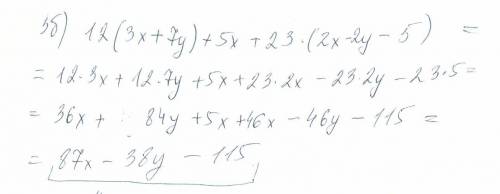 3б) 12(3x+7y)+5x+23·(2x-2y-5) =
= 12·3x+12·7y+5x+23·2x-23·2y-23·5=
= 36x+ 84y+5x+46x-46y-115=
= 87x-38y-115